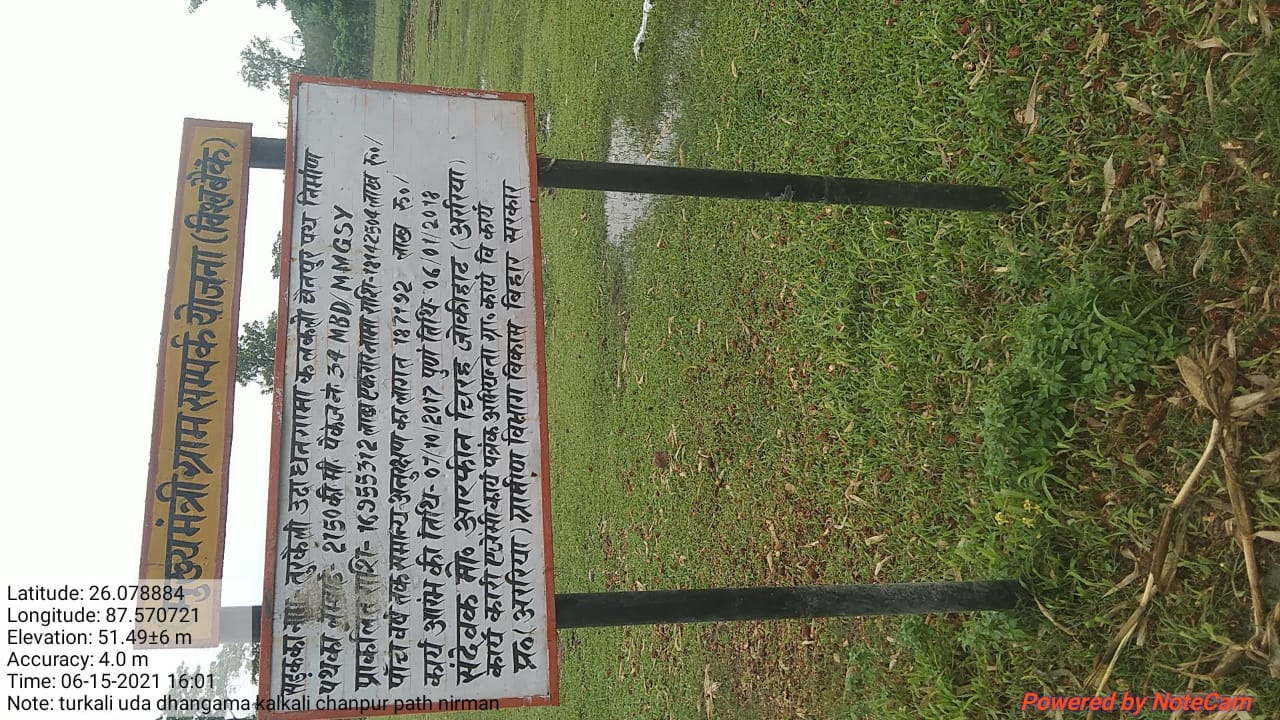 मुख्य मंत्री ग्राम सम्पर्क योजना (विश्व बैंक)
तुरकैली उदा धनगामा कलकली चैनपुर पथ निर्माण
2150 की॰ मी॰ पैकेज नं 34 NBD/MMGSY
प्राकलित राशि- 16955312 लाख एकरा नामा राशि-
पाँच वर्ष तक समान्य अनुरक्षण का लागत 187192 लाख रू०/
कार्य आरंभ की तिथि- 07/10/2017 पुर्ण तिथि- 06/01/2018
संवेदक मो० आरफीन चिरह जोकीहाट (अररिया)
कार्य कारी एजेंसी कार्य पत्रंक अभियन्ता ग्रा० कार्य वि कार्य
प्र०(अररिया) ग्रामीण विभाग विकास बिहार सरकार
Latitude: 26.078884
Longitude: 87.570721
Elevation: 51.49±6 m
Accuracy: 4.0 m
Time: 06-15-2021 16:01
Note: turkali uda dhangama kalkali chanpur path nirman
Powered by NoteCam